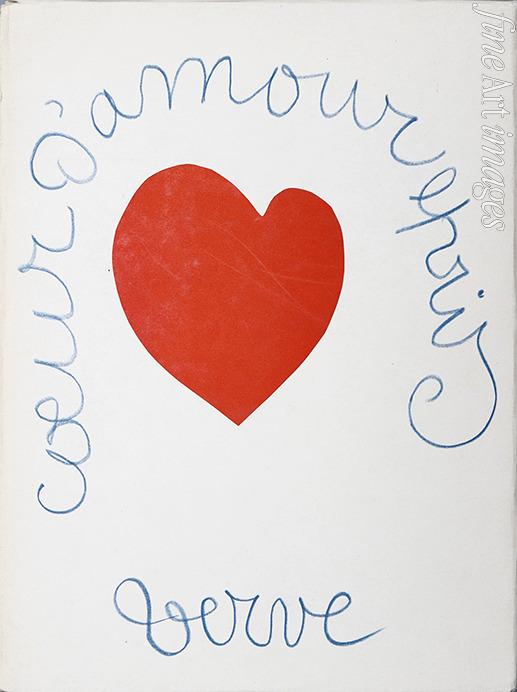 cœur d'amour épris
verve
fine Art images